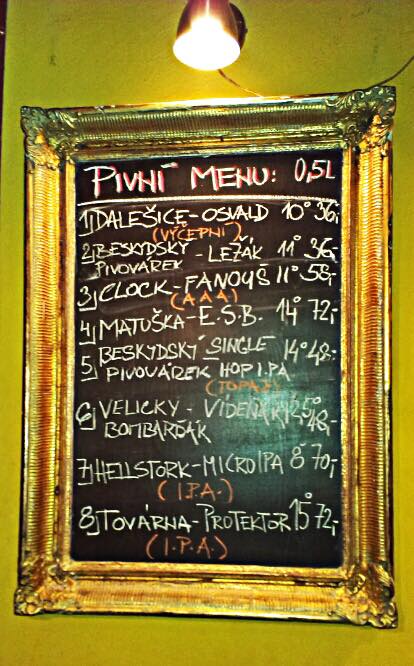 PIVNÍ MENU: 0,5L
1) DALEŠICE - OSVALD 10° 36,-
(VÝČEPNÍ)
2) BESKYDSKÝ - LEŽÁK 11° 36,-
PIVOVÁREK
3) CLOCK - FANOUŠ 11° 58,-
(AAA)
4) MATUŠKA - E.S.B. 14° 72,-
5) BESKYDSKÝ SINGLE 14° 48,-
PIVOVÁREK HOP I.PA
(TOPAZ)
6) VELICKÝ - VÍDEŇÁK 48,-
BOMBARĎÁK
7) HELLSTORK - MICRO IPA 8° 70,-
(I.P.A.)
8) TOVÁRNA - PROTEKTOR 15° 72,-
(I.P.A.)